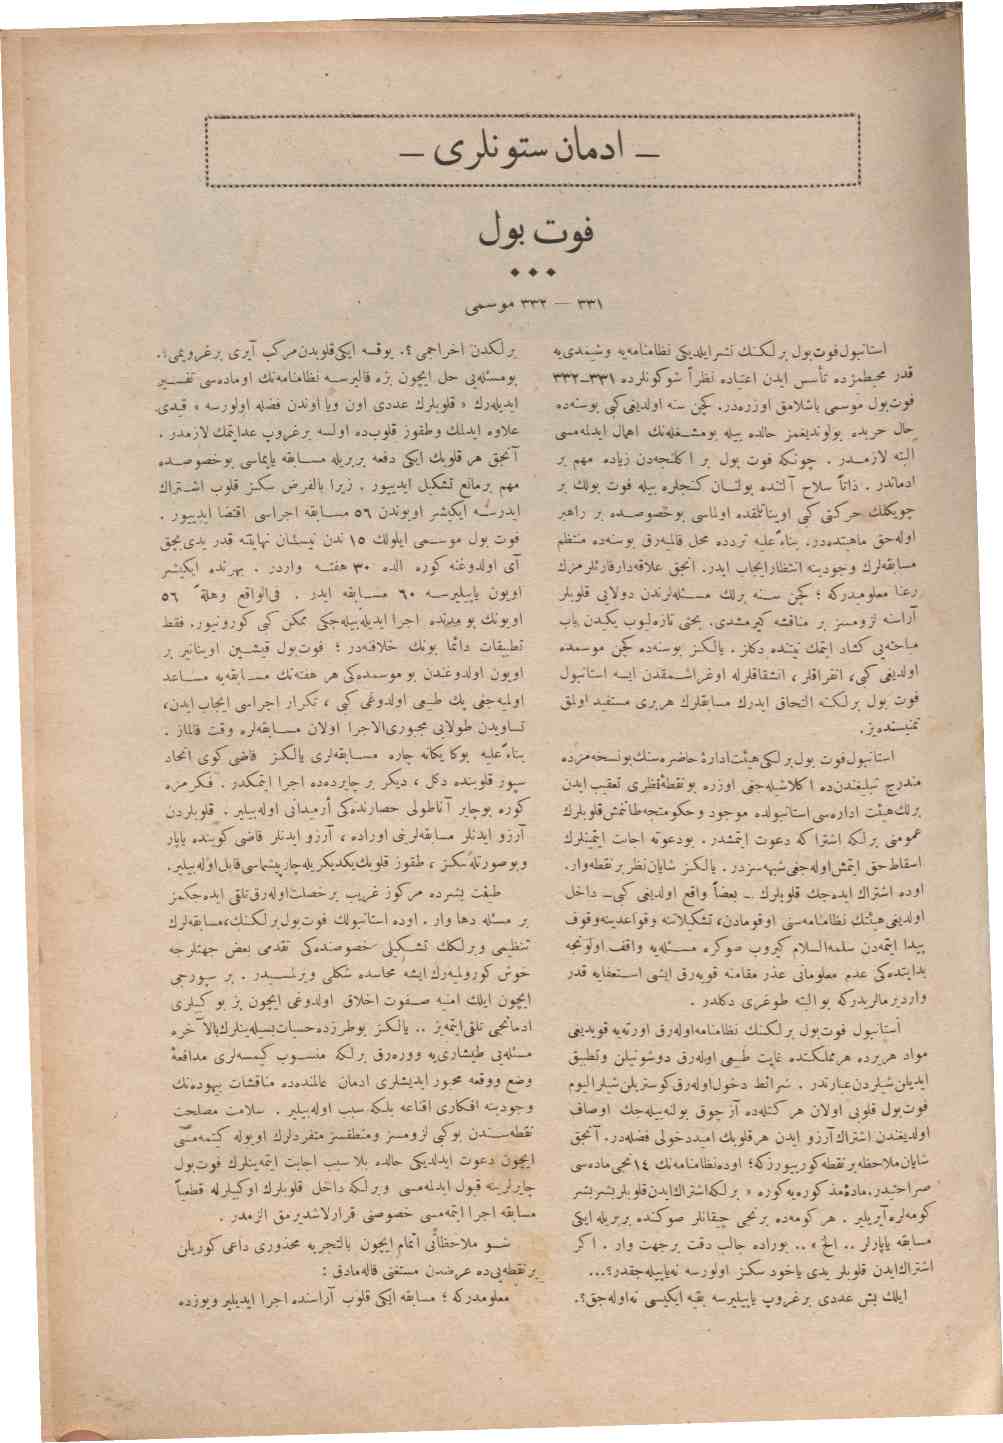 — ادمان ستونلری —
فوت بول
٣٣١ — ٣٣٢ موسمی
استانبول فوت بول برلكنك نشر ایلدیكی نظامنامه یه وشیمدی یه
قدر محیطمزده تأسس ایدن اعتیاده نظراً شو كونلرده ٣٣١-٣٣٢
فوت بول موسمی باشلامق اوزره در. كچن سنه اولدیغی كبی بوسنه ده
حال حربده بولوندیغمز حالده بیله بومشغله نك اهمال ایدلمه سی
البته لازمدر . چونكه فوت بول بر اكلنجه دن زیاده مهم بر
ادماندر . ذاتاً سلاح آلتنده بولنان كنجلره بیله فوت بولك بر
چویكلك حركتی كبی اویناتلقده اولماسی بوخصوصده بر راهبر
اوله جق ماهیتده در. بناءً علیه تردده محل قالمیه رق بوسنه ده منتظم
مسابقه لرك وجودینه انتظار ایجاب ایدر. انجق علاقه دار قارئلرمزك
رعنا معلومیدركه ؛ كچن سنه برلك مسئله لرندن دولایی قلوبلر
آراسنه لزومسز بر مناقشه كیرمشدی. بحثی تازه لیوب یكیدن باب
مباحثه یی كشاد ایتمك نیتنده دكلز . یالكز بوسنه ده كچن موسمده
اولدیغی كبی، انفراقلر ، انشقاقلرله اوغراشمقدن ایسه استانبول
فوت بول برلكنه التحاق ایدرك مسابقلرك هربری مستفید اولمق
تمنیسنده یز.
استانبول فوت بول برلكی هیئت ادارهٔ حاضره سنك بو نسخه مزده
مندرج تبلیغندن ده اكلاشیله جغی اوزره بو نقطهٔ نظری تعقیب ایدن
برلك هیئت اداره سی استانبولده موجود و حكومتجه طانتمش قلوبلرك
عمومنی برلكه اشتراكه دعوت ایتمشدر . بودعوته اجابت ایتمینلرك
اسقاط حق ایتمش اوله جغی شبهه سزدر . یالكز شایان نظر بر نقطه وار.
اوده اشتراك ایده جك قلوبلرك — بعضاً واقع اولدیغی كبی — داخل
اولدیغی هیئتك نظامنامه سنی اوقومادن، تشكیلاتنه وقواعدینه وقوف
پیدا ایتمه دن سلمه السلام كیروب صوكره مسئله یه واقف اولونجه
بدایتده كی عدم معلوماتی عذر مقامنه قویه رق ایشی استعفایه قدر
واردیرمالریدركه بو البته طوغری دكلدر .
استانبول فوت بول برلكنك نظامنامه اوله رق اورته یه قویدیغی
مواد هریرده هرمملكتده غایت طبیعی اوله رق دوشونیلن وتطبیق
ایدیلن شیلردن عبارتدر . شرائط دخول اوله رق كوستریلن شیلر الیوم
فوت بول قلوبی اولان هر كتله ده آز چوق بولنه بیله جك اوصاف
اولدیغندن اشتراك آرزو ایدن هر قلوبك امید دخولی فضله در. آنجق
شایان ملاحظه بر نقطه كوریبورزكه؛ اوده نظامنامه نك ١٤ نجی ماده سی
صراحتیدر. مادهٔ مذكوره یه كوره « برلكه اشتراك ایدن قلوبلر بشر بشر
كومه لره آیریلیر . هر كومه ده برنجی چیقانلر صوكنده بربریله ایكی
مسابقه یاپارلر .. الخ » .. بوراده جالب دقت برجهت وار . اكر
اشتراك ایدن قلوبلر یدی یاخود سكز اولورسه نه یاپیله جقدر؟...
ایلك بش عددی برغروپ یاپیلیرسه بقیه ایكیسی نه اوله جق؟.
برلكدن اخراجمی ؟. یوقسه ایكی قلوبدن مركب آیری برغروپمی؟.
بومسئله یی حل ایچون بزه قالیرسه نظامنامه نك اوماده سی تفسیر
ایدیله رك « قلوبلرك عددی اون ویا اوندن فضله اولورسه » قیدی
علاوه ایدلمك وطقوز قلوب ده اولسه برغروپ عد ایتمك لازمدر .
آنجق هر قلوبك ایكی دفعه بربریله مسابقه یاپماسی بوخصوصده
مهم برمانع تشكیل ایدییور . زیرا بالفرض سكز قلوب اشتراك
ایدرسه ایكیشر اویوندن ٥٦ مسابقه اجراسی اقتضا ایدییور .
فوت بول موسمی ایلولك ١٥ ندن نیسان نهایتنه قدر یدی بچق
آی اولدوغنه كوره الده ٣٠ هفته واردر . بهرنده ایكیشر
اویون یاپیلیرسه ٦٠ مسابقه ایدر . فی الواقع وهلةً ٥٦
اویونك بو میزنده اجرا ایدیله بیله جكی ممكن كبی كورونیور. فقط
تطبیقات دائما بونك خلافنه در ؛ فوت بول قیشین اوینانیر بر
اویون اولدوغندن بو موسمده كی هر هفته نك مسابقه یه مساعد
اولمیه جغی پك طبیعی اولدوغی كبی ، تكرار اجراسی ایجاب ایدن،
تساویدن طولایی مجبوری الاجرا اولان مسابقه لره وقت قالماز .
بناءً علیه بوكا یكانه چاره مسابقه لری یالكز قاضی كوی اتحاد
سپور قلوبنده دكل ، دیكر بر چایرده ده اجرا ایتمكدر . فكرمزه
كوره بوچایر آناطولی حصارنده كی ارمیدانی اوله بیلیر . قلوبلردن
آرزو ایدنلر مسابقه لرینی اوراده ، آرزو ایدنلر قاضی كوینده یاپار
وبوصورتله سكز ، طقوز قلوبك یكدیكریله چارپیشماسی قابل اوله بیلیر.
طبیعت بشرده مركوز غریب برخصلت اوله رق تلقی ایده جكمز
بر مسئله دها وار . اوده استانبولك فوت بول برلكنك، مسابقه لرك
تنظیمی وبرلكك تشكیلی خصوصنده كی تقدمی بعض جهتلرجه
خوش كورولمیه رك ایشه محاسده شكلی ویرلمسیدر . بر سپورجی
ایچون ایلك امنیه صفوت اخلاق اولدوغی ایچون بز بو كیلری
ادمانجی تلقی ایتمه یز .. یالكز بوطرزده حسیات بسیله ینلرك بالآخره
مسئله یی طیشاری یه ووره رق برلكه منسوب كیمسه لری مدافعهٔ
وضع ووقعه مجبور ایدیشلری ادمان عالمنده ده مناقشات بیهوده نك
وجودینه افكاری اقناعه بلكه سبب اوله بیلیر . سلامت مصلحت
نقطه سندن بوكبی لزومسز ومنطقسز متفردلرك اویوله كتمه مسی
ایچون دعوت ایدلدیكی حالده بلا سبب اجابت ایتمه ینلرك فوت بول
چایرلرینه قبول ایدلمه مسی وبرلكه داخل قلوبلرك اوكبیلرله قطعیاً
مسابقه اجرا ایتمه مسی خصوصنی قرارلاشدیرمق الزمدر .
شو ملاحظاتی اتمام ایچون بالتجربه محذوری داعی كوریلن
بر نقطه یی ده عرضدن مستغنی قاله مادق :
معلومدركه ؛ مسابقه ایكی قلوب آراسنده اجرا ایدیلیر وبوزده